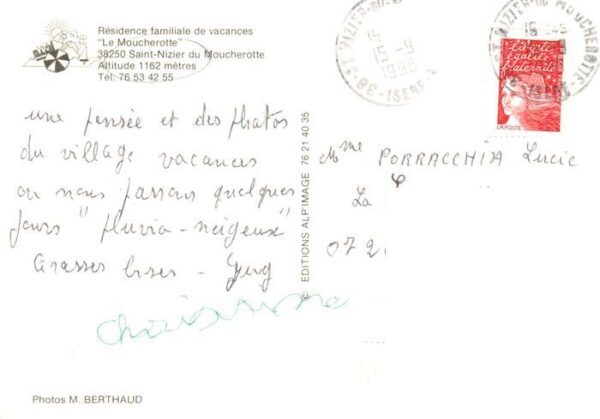 Résidence familiale de vacances
"Le Moucherotte"
38250 Saint-Nizier du Moucherotte
Altitude 1162 mètres
Tél. 76 53 42 55
ST NIZIER-DU-
15
15-9
1998
38-ISERE
ST NIZIER-DU MOUCHEROTTE
38-ISERE
liberté
égalité
fraternité
LA POSTE
une pensée et des photos
du village vacances
ou nous passons quelques
jours "pluvio-neigeux"
Grosses bises -
© EDITIONS ALP'IMAGE 76 21 40 35
Mme PORRACCHIA Lucie
La
072
Photos M. BERTHAUD